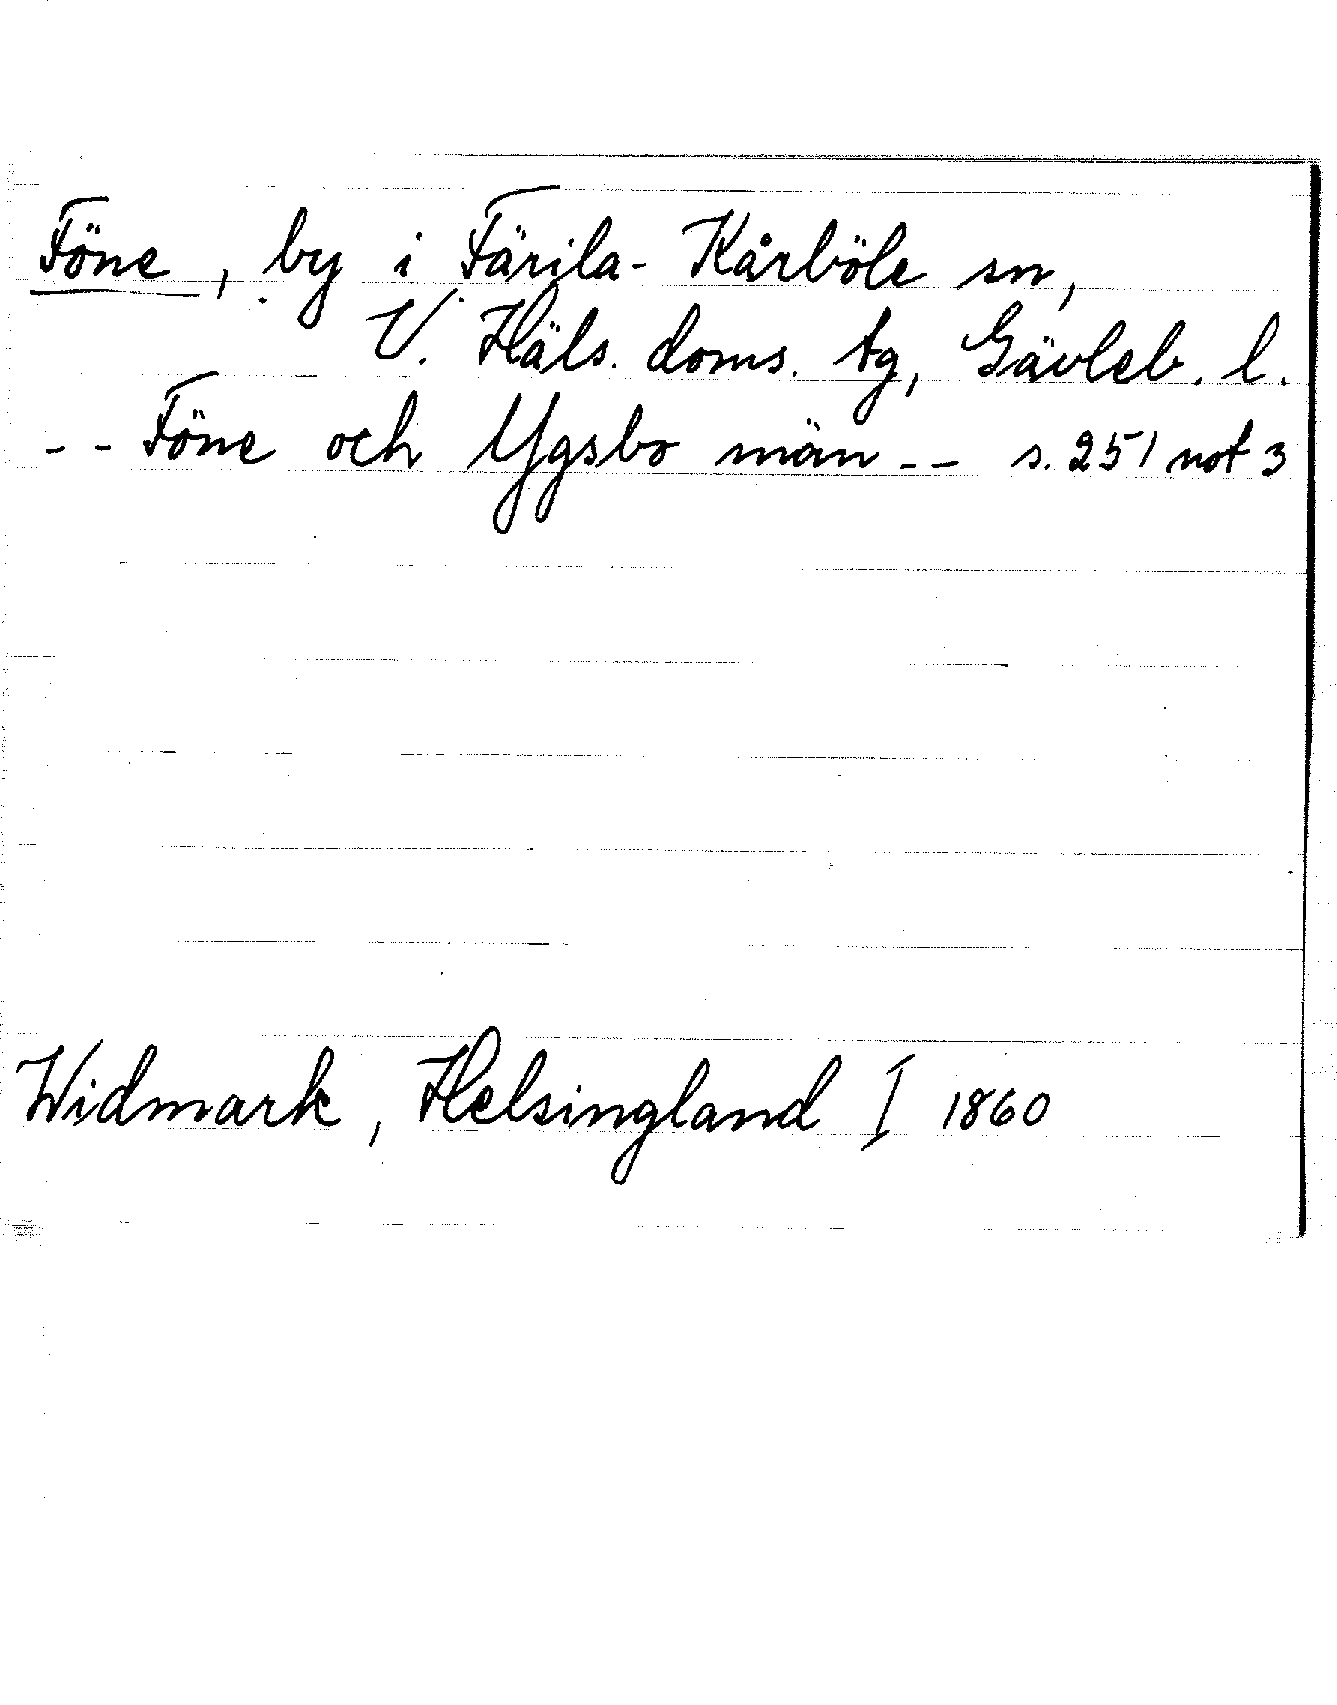 Föne, by i Färila-Kårböle sn,
V. Häls. doms. tg, Gävleb. l.
-- Föne och Ygsbo män -- s. 251 not 3
Widmark, Helsingland I 1860